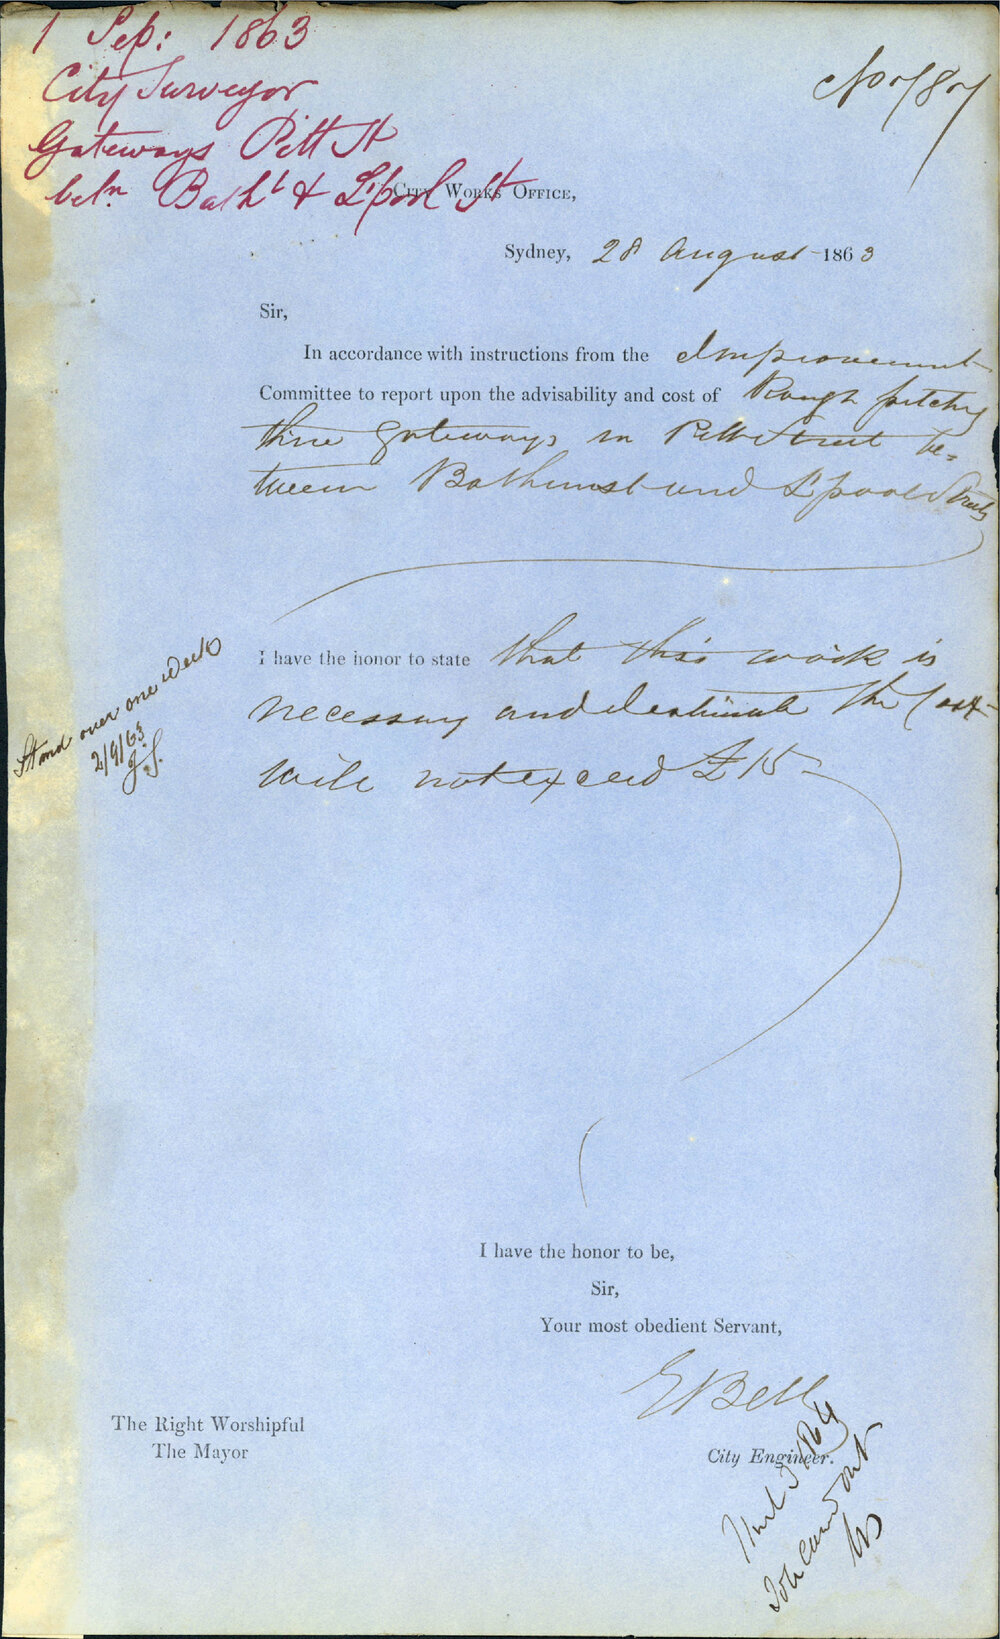 1 Sep: 1863
City Surveyor
Gateways Pitt St
betn. Batht & L'pool St
No 787
City Works Office,
Sydney, 28 August 1863
Sir,
In accordance with instructions from the Improvement
Committee to report upon the advisability and cost of Rough pitching
three gateways in Pitt Street be=
tween Bathurst and L'pool Streets
Stand over one week
2/9/63
J.S.
I have the honor to state that this work is
necessary and I estimate the Cost
will not exceed £15
I have the honor to be,
Sir,
Your most obedient Servant,
E Bell
City Engineer.
The Right Worshipful
The Mayor
To be carried out